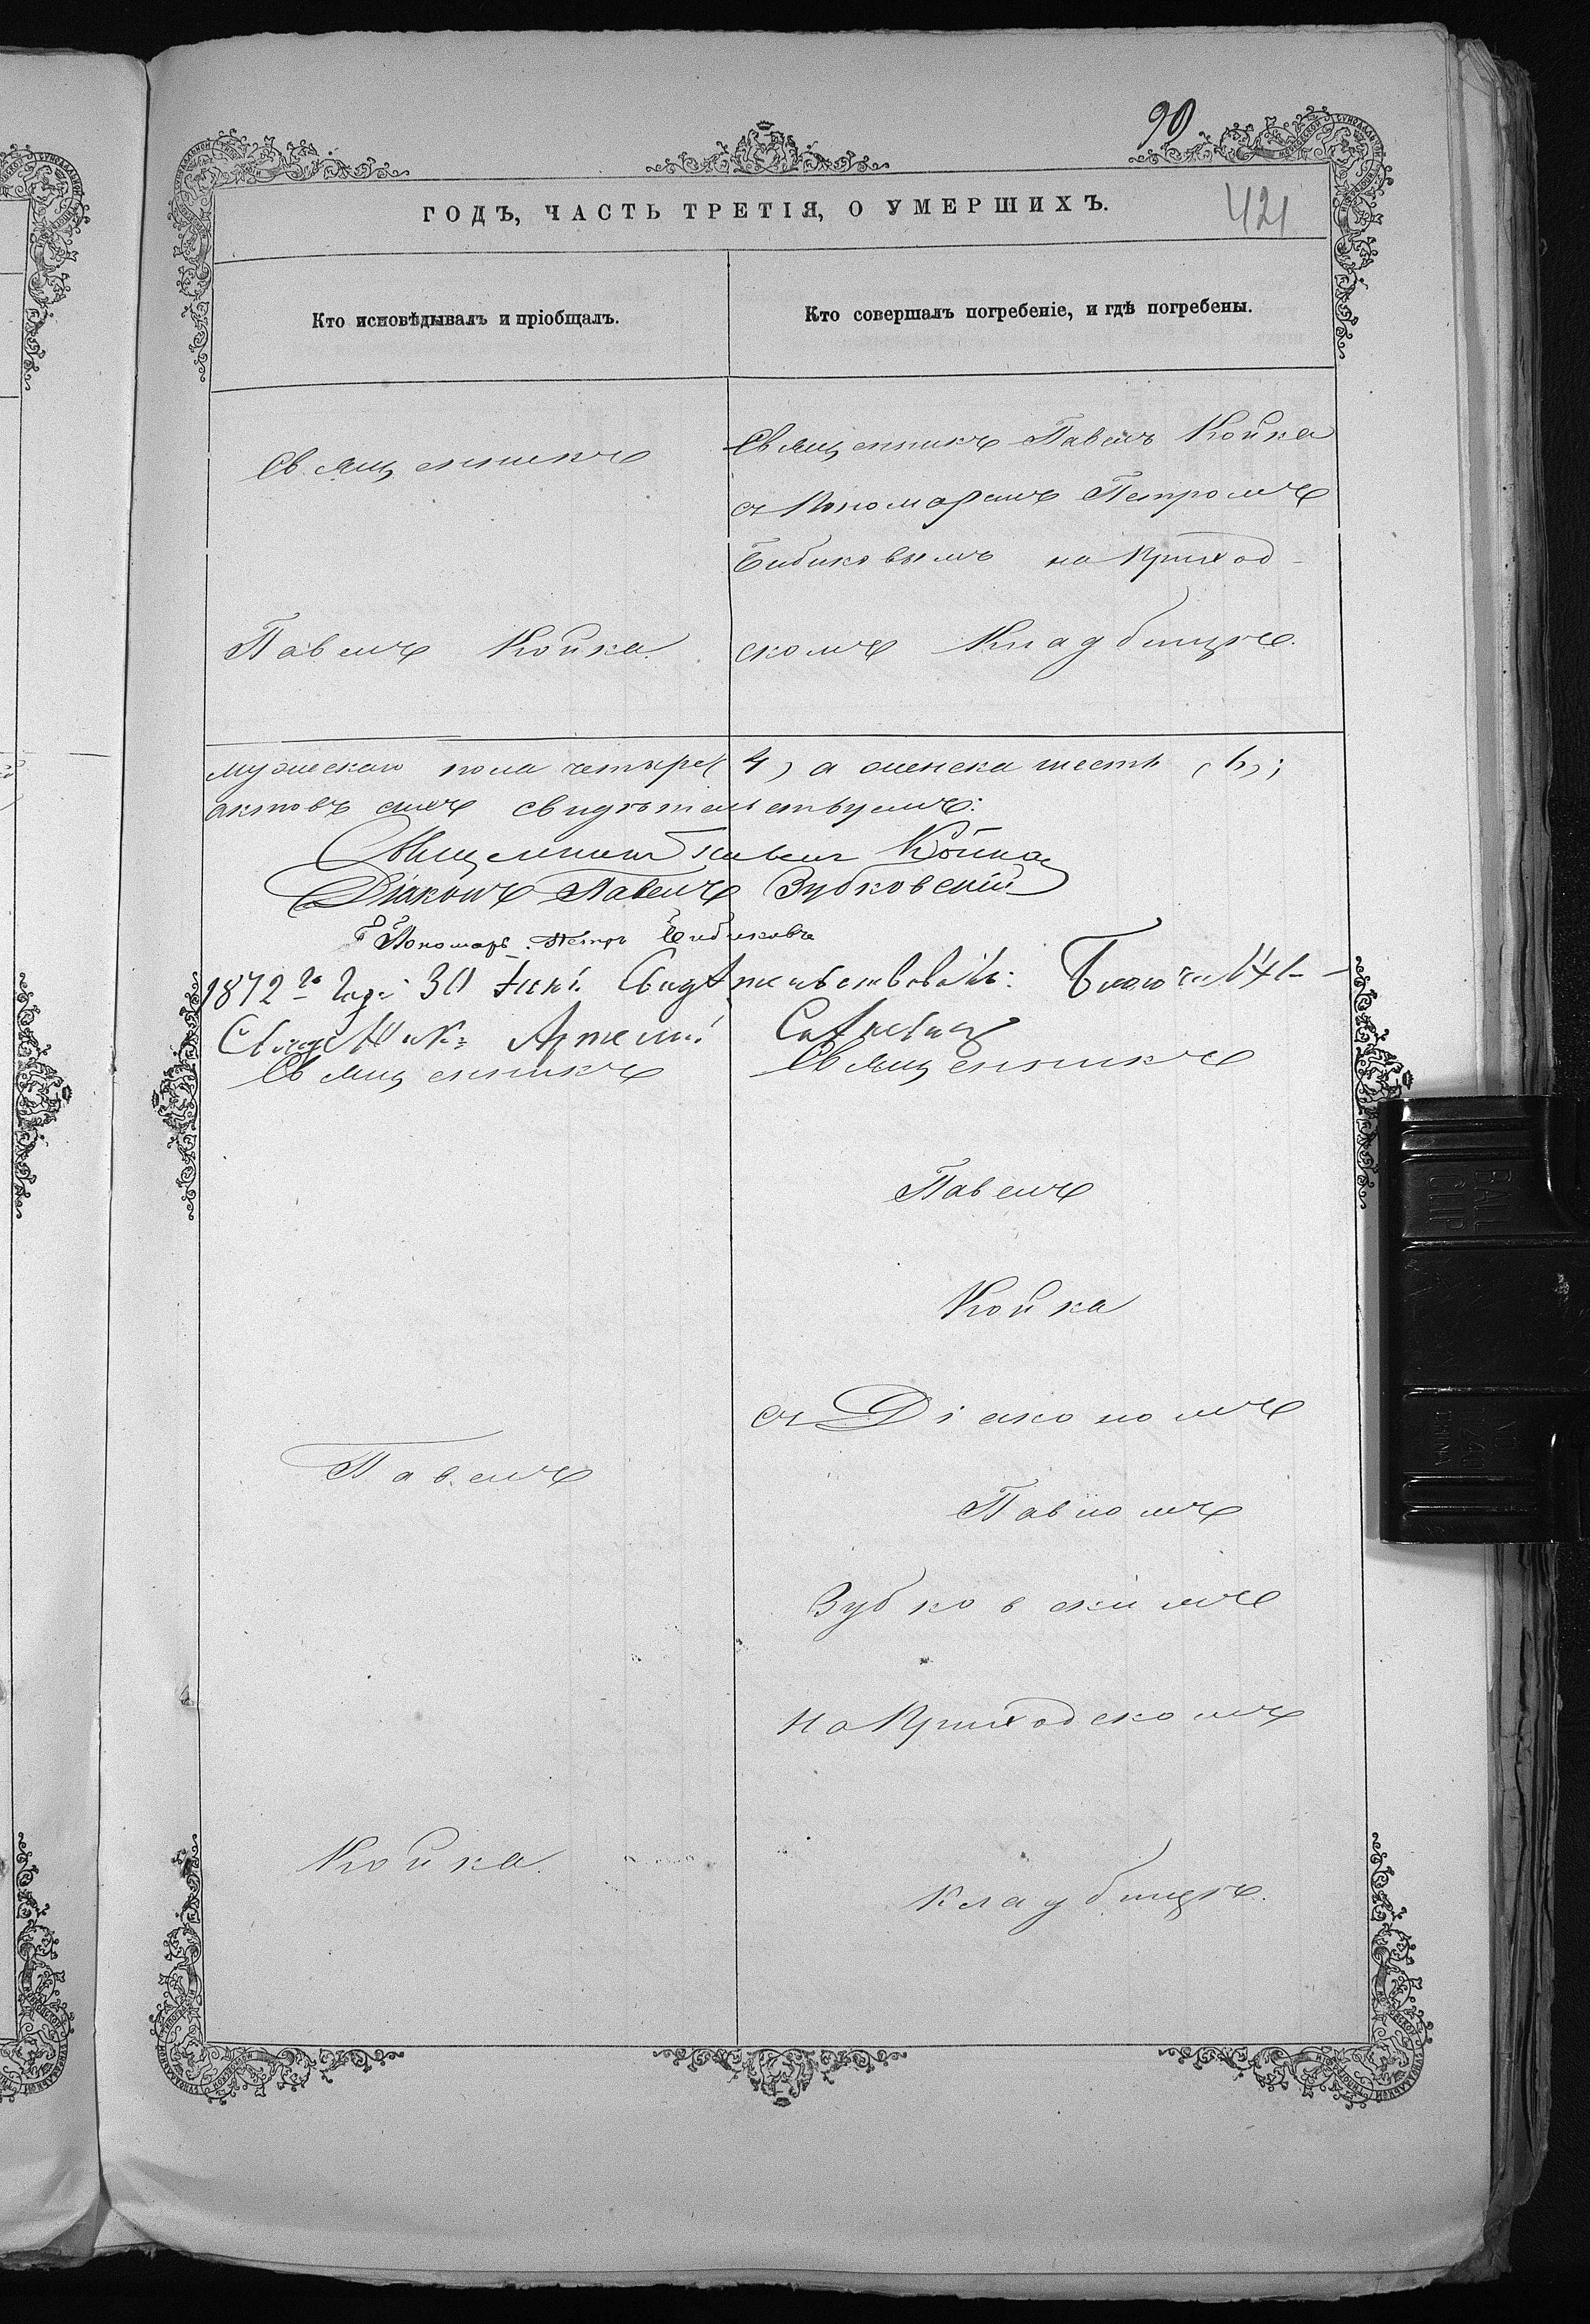 90
421
ГОДЪ, ЧАСТЬ ТРЕТІЯ, О УМЕРШИХЪ.
Кто исповѣдывалъ и пріобщалъ.
Кто совершалъ погребеніе, и гдѣ погребены.
Священникъ
Павелъ Койка.
Священникъ Павелъ Койка
съ Пономаремъ Петромъ
Бибиковымъ на Приход-
скомъ Кладбищѣ.
мужескаго пола четыре (4) а женска шесть (6);
актовъ симъ свидѣтельствуемъ:
Священникъ Павелъ Койка
Діаконъ Павелъ Зубковскій
Пономарь Петръ Бибиковъ
1872го Года 30 Свидѣтельствовалъ: Благочинный
Священникъ Артемій
Священникъ
Павелъ
Койка.
Священникъ
Павелъ
Койка
съ Діакономъ
Павломъ
Зубковскимъ
на Приходскомъ
кладбищѣ.
BALL
CLIP